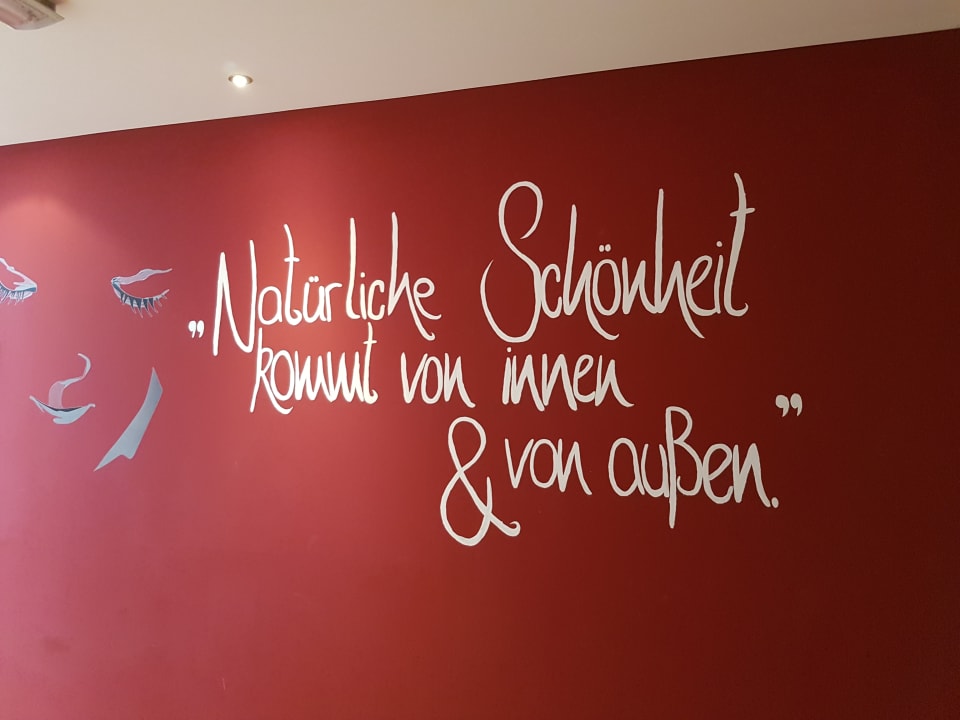 „Natürliche Schönheit
kommt von innen
& von außen.”